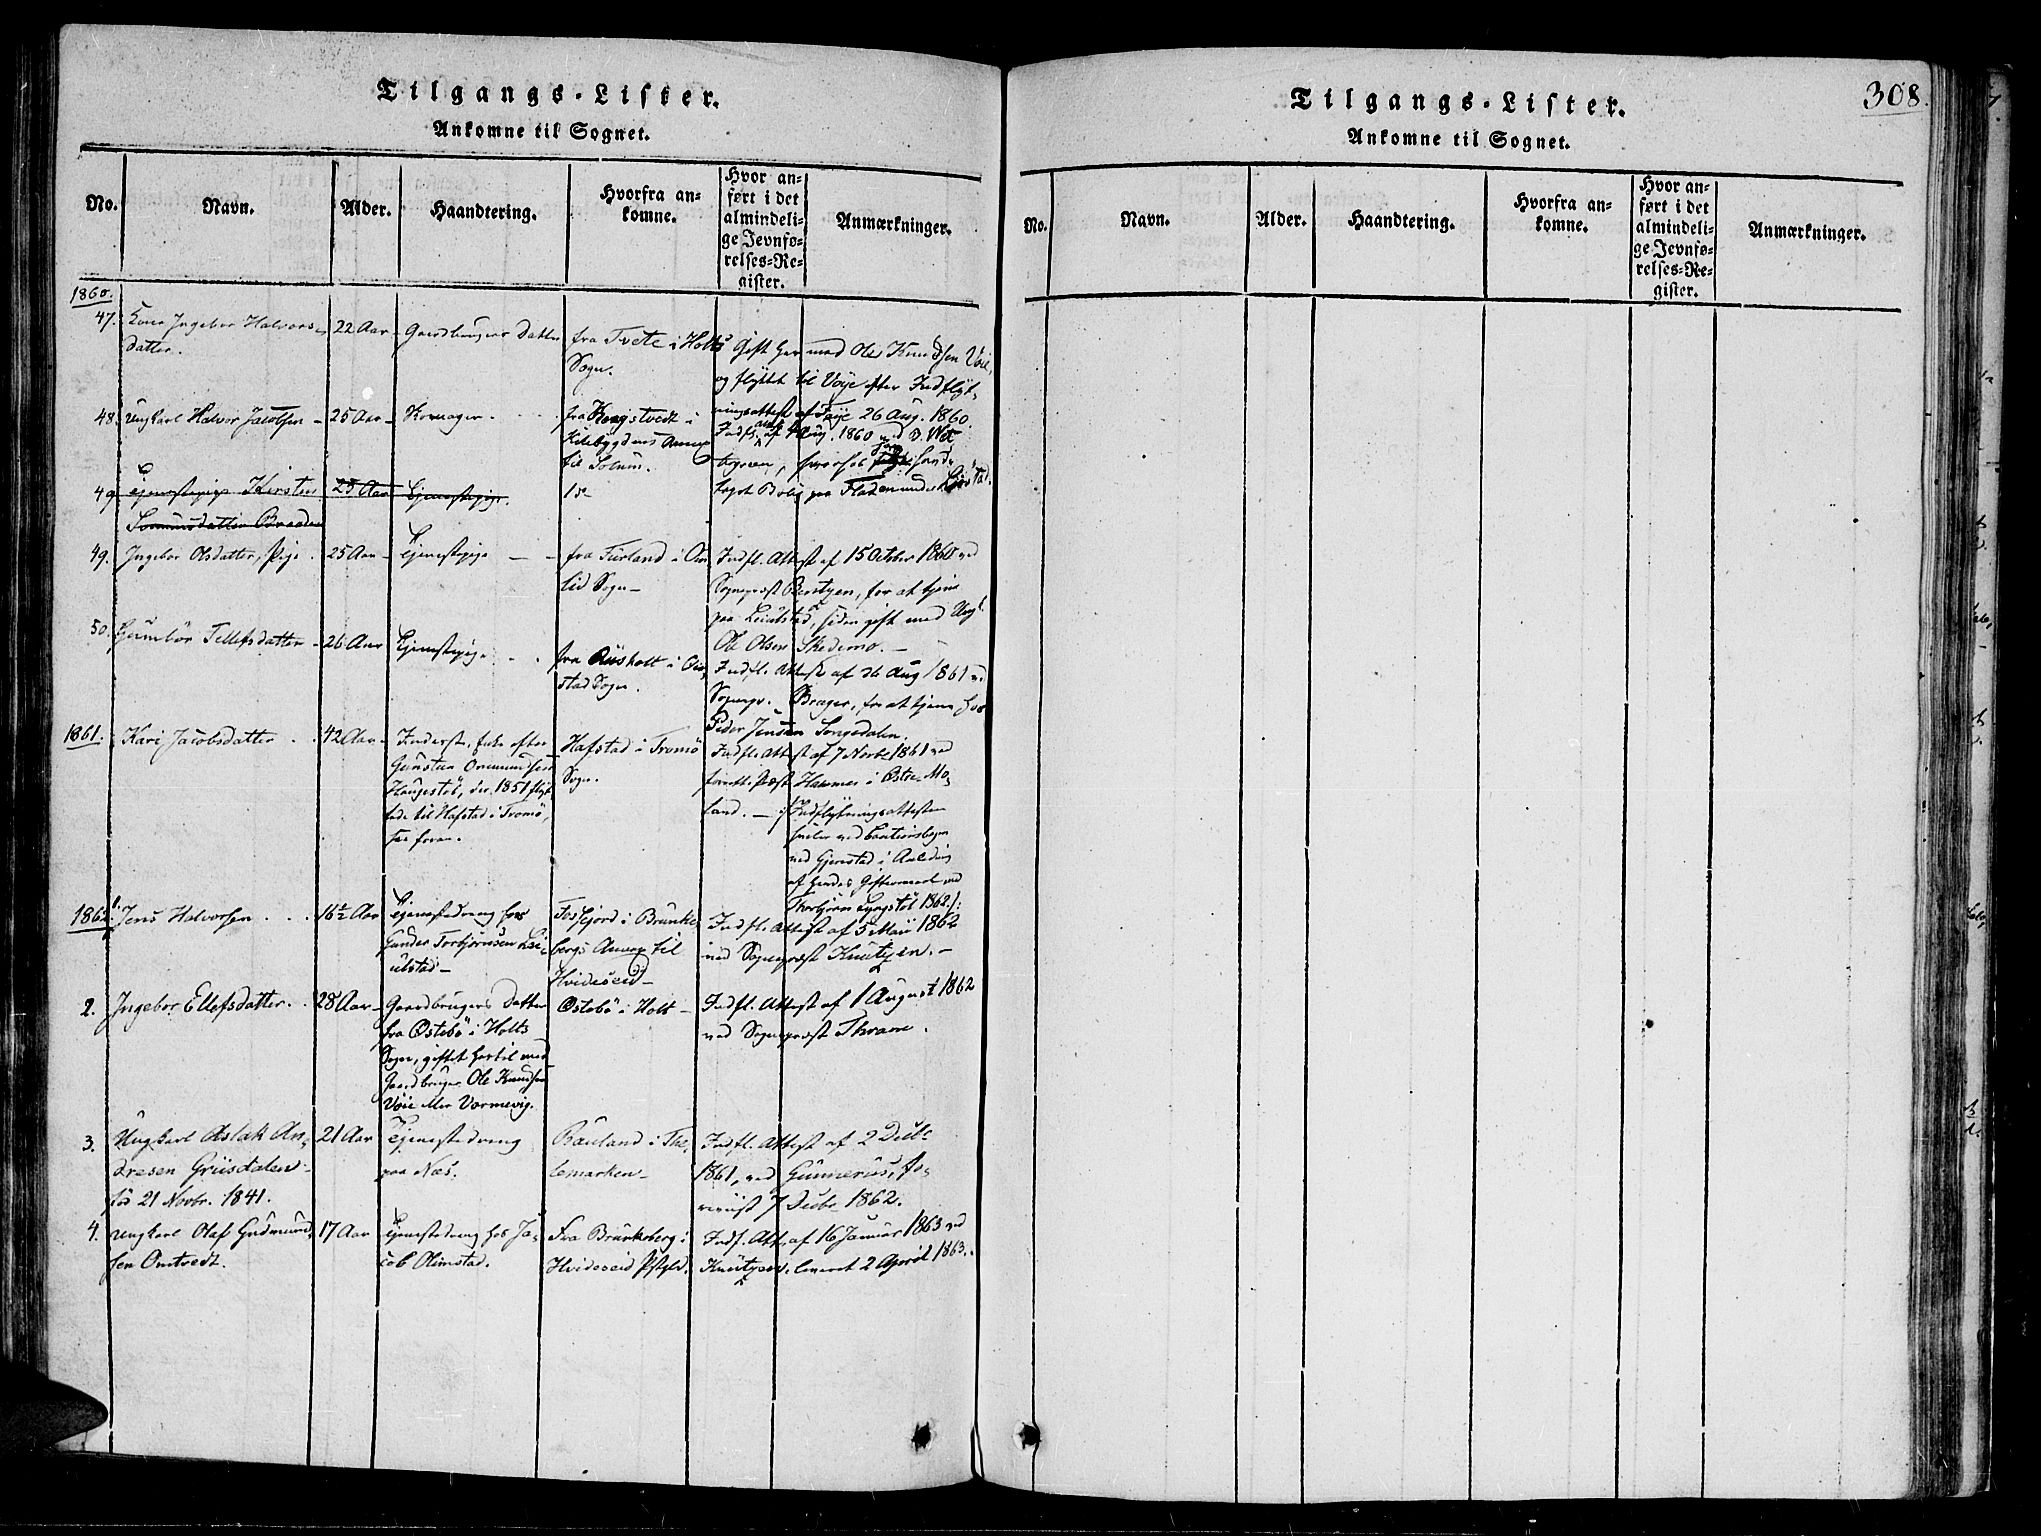 Tilgangs-Lister.
Ankomne til Sognet.
No.
Navn.
Alder.
Haandtering.
Hvorfra an-
komne.
Hvor an-
ført i det
almindeli-
ge Jevnfø-
relses-Re-
gister.
Anmærkninger.
1860.
47. Kone Ingebor Halvors-
datter.
22 Aar
Gaardbrugers Datter
fra Tvete i Holts
Sogn.
Gift her med Ole Knudsen Voie,
og flyttet til Voje efter Indflyt-
ningsattest af Faye 26 Aug. 1860.
48. Ungkarl Halvor Jacobsen
25 Aar
fra Krogstvedt i
Eidebygdens Annex
til Solum.
Indfl. att. af 4 Aug. 1860 ved D. Wet
paa Fladen under
49. Tjenestepige Kirsten
25 Aar
Tjenestepige.
49. Ingebor Olsdatter, Pige
25 Aar
Tjenestepige
fra Furland i Om
lid Sogn
Indfl. Attest af 15 October 1860 ved
Sognepræst Berntzen, for at tjene
paa Leiulstad, siden gift med Ungk.
Ole Olsen Skedemo.
50. Gunbør Tellefsdatter
26 Aar
Tjenestepige
fra Riisholt i Øie
stad Sogn.
Indfl. Attest af 26 Aug 1861 ved
Sognepr. Brager, for at tjene hos
Peder Jensen Songedalen.
1861.
Kari Jacobsdatter
42 Aar
Inderst. Enke efter
Gunstein Onnundsen
Haugestøl, der 1851 flyt
tede til Hafstad i Tromø,
see foran.
Hafstad i Tromø
Sogn.
Indfl. Attest af 7 Novbr 1861 ved
forrett. Præst Hammer i Østre Mo-
land. — Indflytningsattesten
hviler ved Cautionsbogen
ved Gjerestad i Anledn.
af hendes Giftermaal med
Thorbjørn Lyngstøl 1862.
1862. 1. Jens Halvorsen
16½ Aar
Tjenestedreng hos
Gunder Torbjørnsen Lei-
ulstad
Fosfjord i Brunke
bergs Annex til
Hvideseid
Indfl. Attest af 5 Maii 1862
ved Sognepræst Knutzen.
2. Ingebor Ellefsdatter
28 Aar
Gaardbrugers Datter
fra Østebø i Holts
Sogn, giftet hertil med
Gaardbruger Ole Knudsen
Voie eller Vormevig.
Østebø i Holt
Indfl. Attest af 1 August 1862
ved Sognepræst Thrane.
3. Ungkarl Aslak An-
dresen Grüsdalen
fød 21 Novbr. 1841.
21 Aar
Tjenestedreng
paa Næs.
Rauland i The
lemarken
Indfl. Attest af 2 Decbr
1861, ved Gunnerus, fo-
reviist 7 Decbr 1862.
4. Ungkarl Olaf Gudmund
sen Omtvedt.
17 Aar
Tjenestedreng hos Ja-
cob Olimstad.
Fra Brunkeberg i
Hvideseid Pstgld.
Indf. Att. af 16 Januar 1863 ved
Knutzen, leveret 2 April 1863.
308.
Tilgangs-Lister.
Ankomne til Sognet.
No.
Navn.
Alder.
Haandtering.
Hvorfra an-
komne.
Hvor an-
ført i det
almindeli-
ge Jevnfø-
relses-Re-
gister.
Anmærkninger.